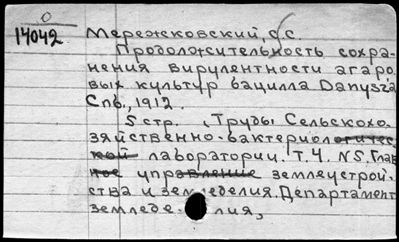 О
14042. Мережковский, С.С.
Продолжительность сохра-
нения вирулентности агаро
вых культур бацилла Danysz'a
Спб., 1912.
5 стр. „Труды Сельскохо-
зяйственно-бактериологичес-
кой лаборатории. Т. 4. №5. Глав
ное управление землеустрой-
ства и земледелия. Департамент
земледелия,